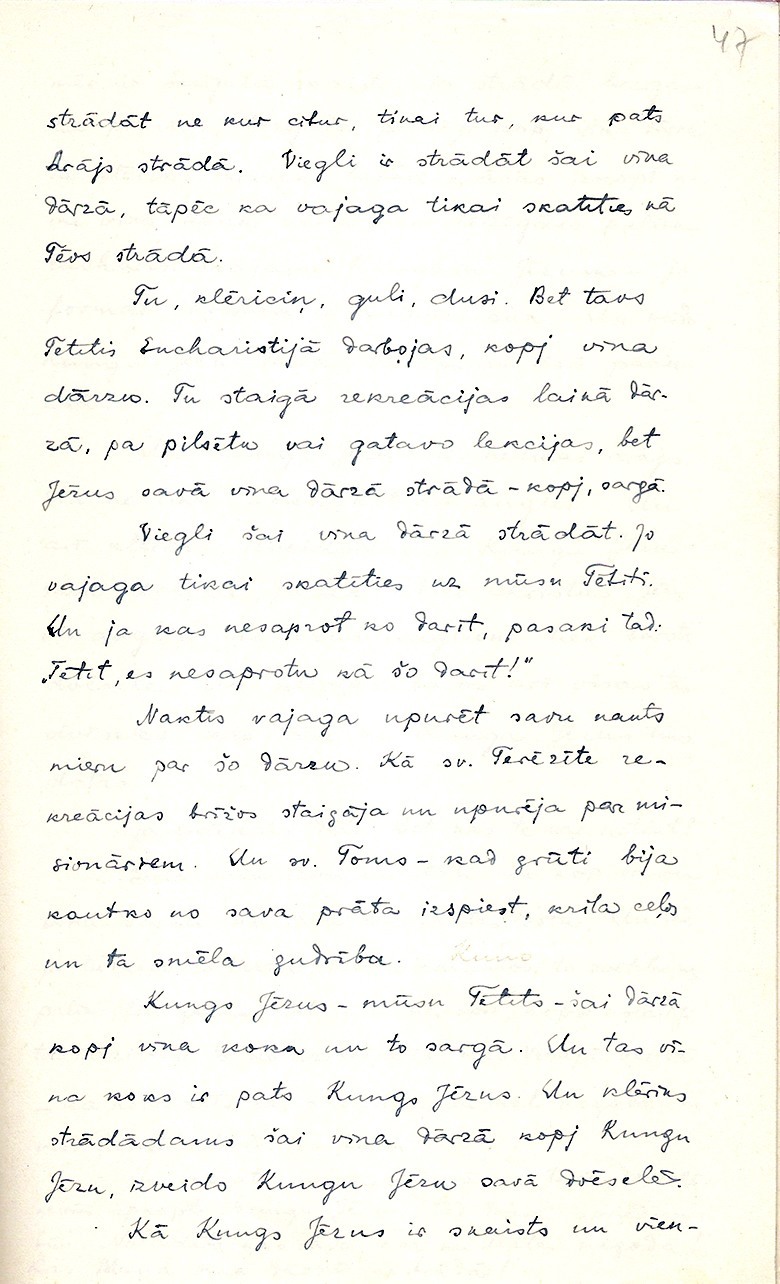 47
strādāt ne kur citur, tikai tur, kur pats
Arājs strādā. Viegli ir strādāt šai vīna
dārzā, tāpēc ka vajaga tikai skatīties kā
Tēvs strādā.
Tu, klēriciņ, guli, dusi. Bet tavs
Tētītis Eucharistijā darbojas, kopj vīna
dārzu. Tu staigā rekreācijas laikā dār-
zā, pa pilsētu vai gatavo lekcijas, bet
Jēzus savā vīna dārzā strādā – kopj, sargā.
Viegli šai vīna dārzā strādāt. Jo
vajaga tikai skatīties uz mūsu Tētīti.
Un ja kas nesaprot ko darīt, pasaki tad:
„Tētīt, es nesaprotu kā šo darīt!"
Naktīs vajaga upurēt savu nakts
mieru par šo dārzu. Kā sv. Terēzīte re-
kreācijas brīžos staigāja un upurēja par mi-
sionāriem. Un sv. Toms – kad grūti bija
kautko no sava prāta izspiest, krita ceļos
un tā smēla gudrība.
Kungs Jēzus – mūsu Tētīts – šai dārzā
kopj vīna koku un to sargā. Un tas vī-
na koks ir pats Kungs Jēzus. Un klēriks
strādādams šai vīna dārzā kopj Kungu
Jēzu, izveido Kungu Jēzu savā dvēselē.
Kā Kungs Jēzus ir skaists un vien-